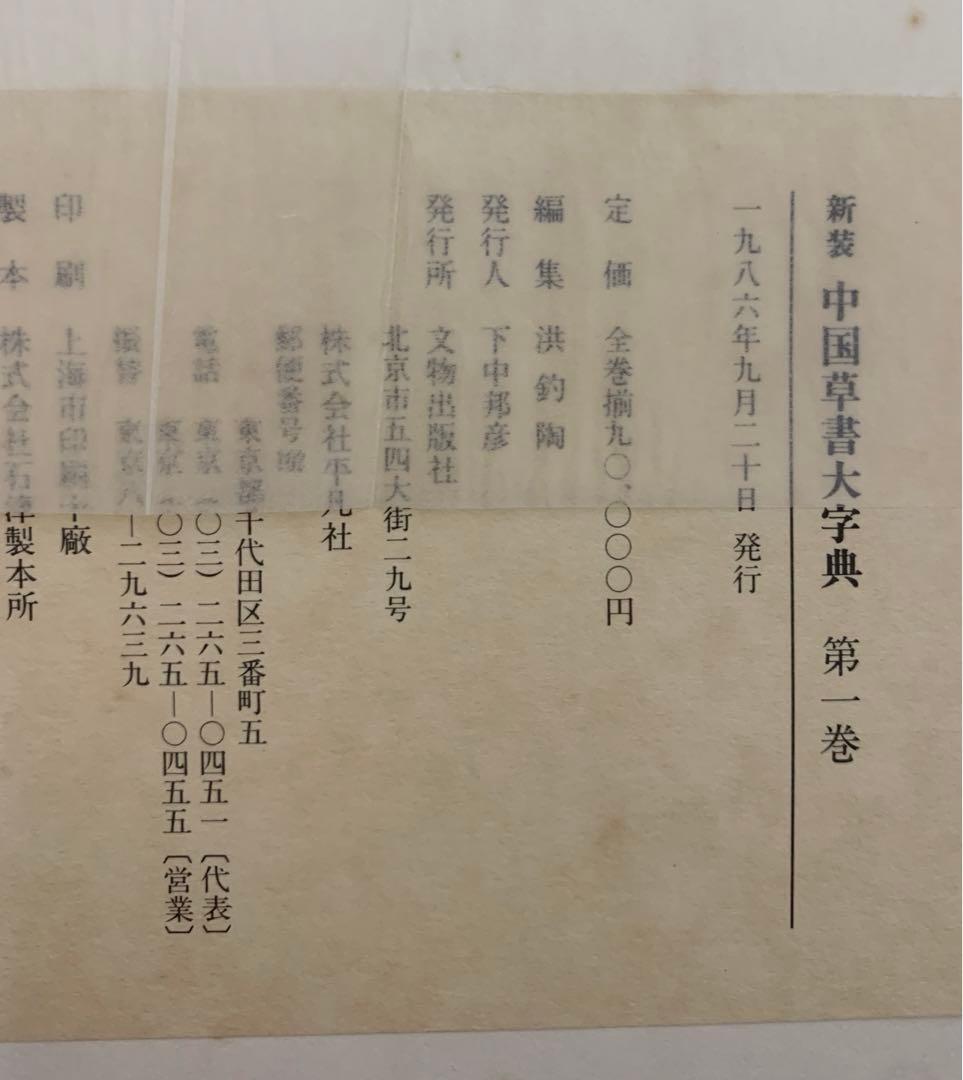 新装 中国草書大字典 第一巻
一九八六年九月二十日 発行
定価 全巻揃九〇、〇〇〇円
編集 洪鈞陶
発行人 下中邦彦
発行所 文物出版社
北京市五四大街二九号
株式会社平凡社
郵便番号
東京都千代田区三番町五
電話 東京(〇三)二六五―〇四五一〔代表〕
東京(〇三)二六五―〇四五五〔営業〕
振替 東京八―二九六三九
印刷 上海市印刷十廠
製本 株式会社石津製本所